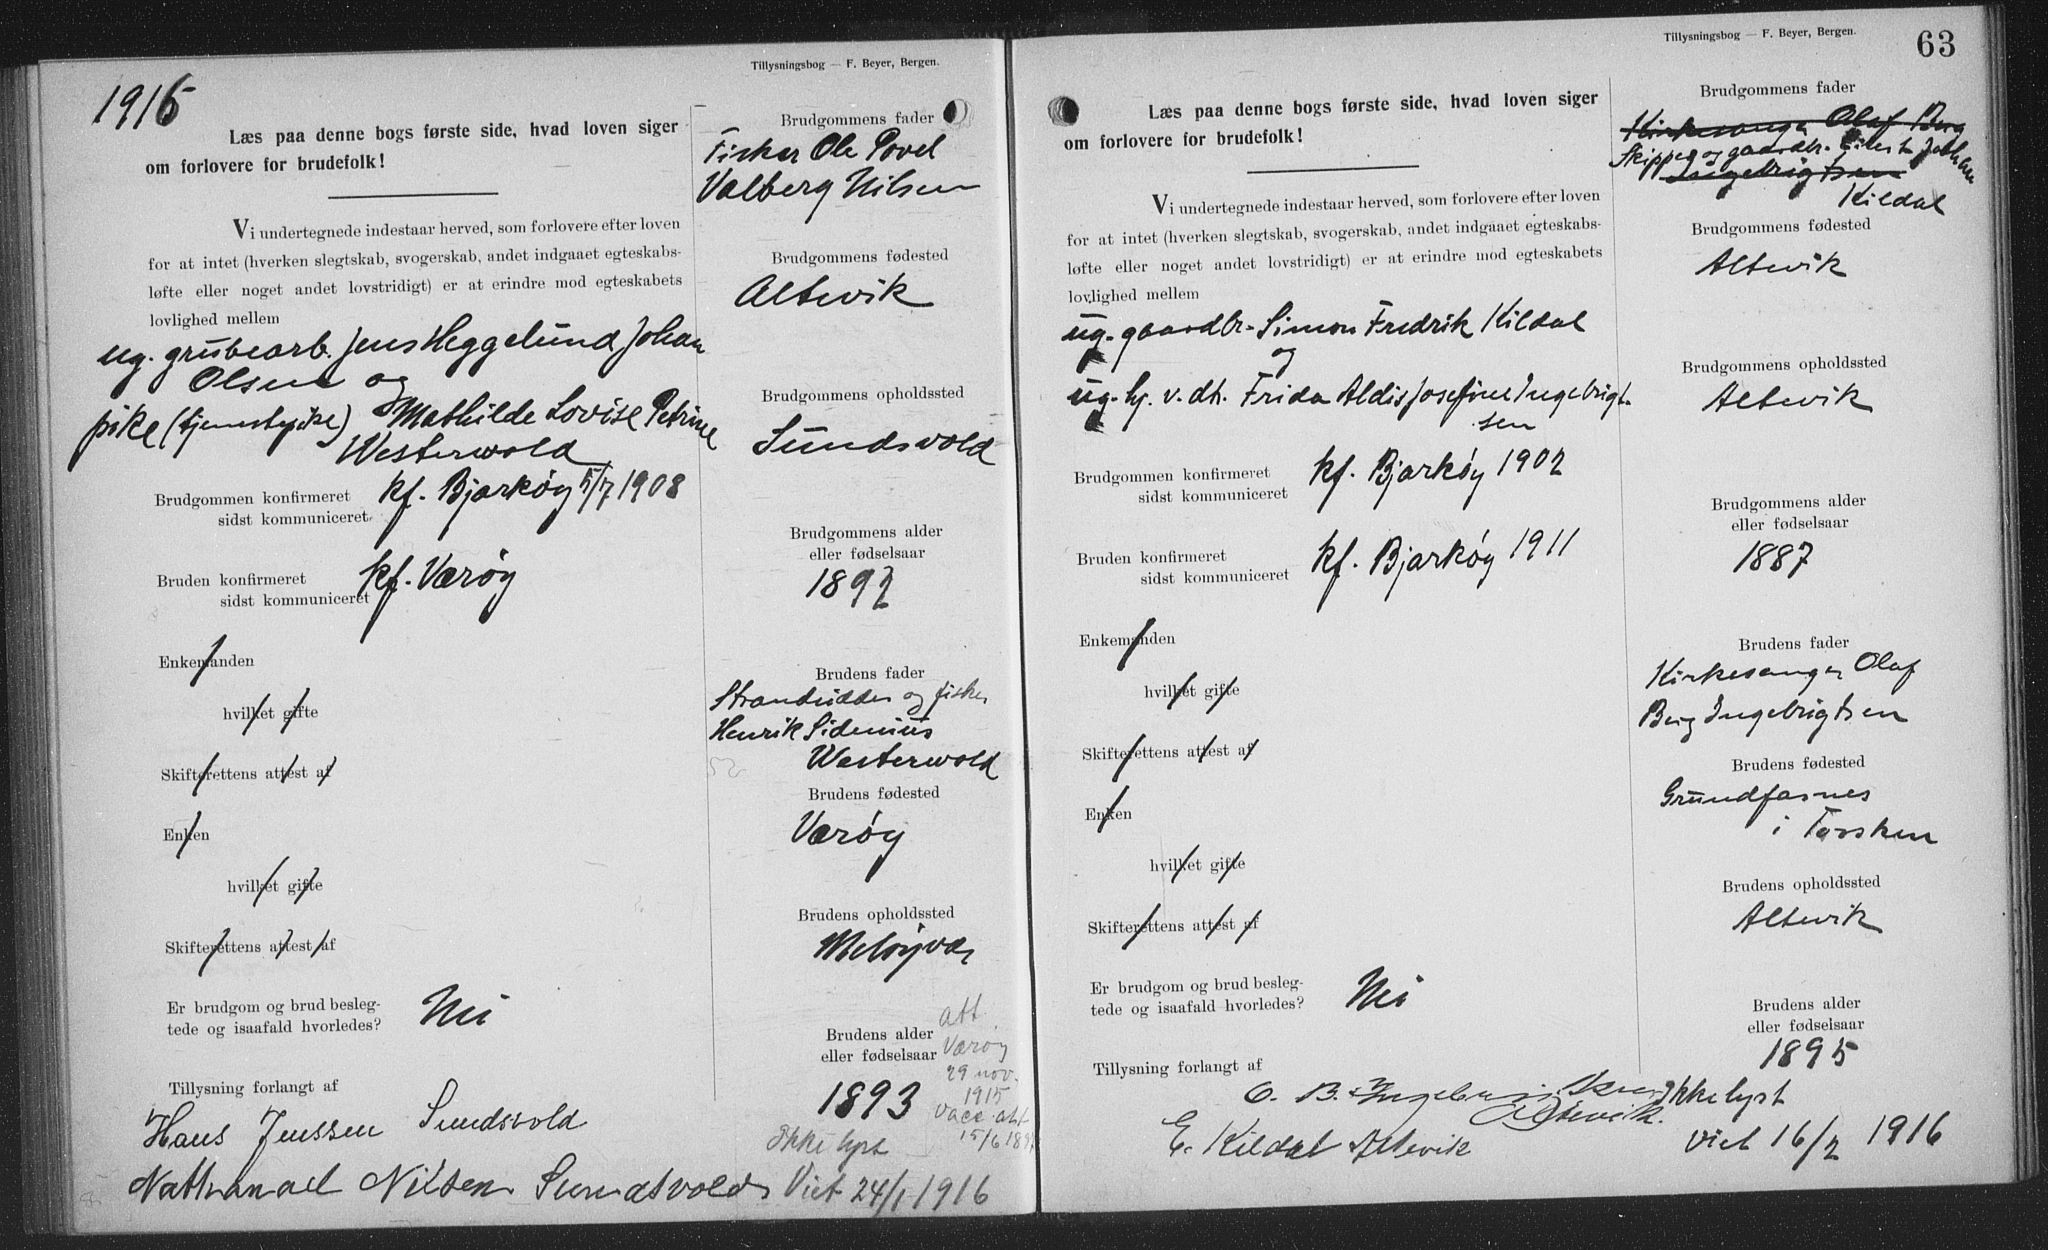 1916
Tillysningsbog — F. Beyer, Bergen.
Læs paa denne bogs første side, hvad loven siger
om forlovere for brudefolk!
Vi undertegnede indestaar herved, som forlovere efter loven
for at intet (hverken slegtskab, svogerskab, andet indgaaet egteskabs-
løfte eller noget andet lovstridigt) er at erindre mod egteskabets
lovlighed mellem
ug. grubearb. Jens Heggelund Johan
Olsen og
pike (tjenestepike) Mathilde Lovise Petrine
Westerwold
Brudgommen konfirmeret
sidst kommuniceret
kf. Bjarkøy 5/7 1908
Bruden konfirmeret
sidst kommuniceret
kf. Værøy
Enkemanden
hvilket gifte
Skifterettens attest af
Enken
hvilket gifte
Skifterettens attest af
Er brudgom og brud besleg-
tede og isaafald hvorledes?
Nei
Tillysning forlangt af
Hans Jenssen Sundsvold
Nathanael Nilsen Sundsvold
Brudgommens fader
Fisker Ole Povel
Valberg Nilsen
Brudgommens fødested
Altevik
Brudgommens opholdssted
Sundsvold
Brudgommens alder
eller fødselsaar
1892
Brudens fader
Strandsidder og fisker
Henrik Sidenius
Westerwold
Brudens fødested
Værøy
Brudens opholdssted
Meløyvær
Brudens alder
eller fødselsaar
1893
att.
Værøy
29 nov.
1915
vacc. att
15/6
Ikke lyst
Viet 24/1 1916
Tillysningsbog — F. Beyer, Bergen.
63
Læs paa denne bogs første side, hvad loven siger
om forlovere for brudefolk!
Vi undertegnede indestaar herved, som forlovere efter loven
for at intet (hverken slegtskab, svogerskab, andet indgaaet egteskabs-
løfte eller noget andet lovstridigt) er at erindre mod egteskabets
lovlighed mellem
ug. gaardbr. Simon Fredrik Kildal
og
ug. hj. v. dt. Frida Aldis Josefine Ingebrigt-
sen
Brudgommen konfirmeret
sidst kommuniceret
kf. Bjarkøy 1902
Bruden konfirmeret
sidst kommuniceret
kf. Bjarkøy 1911
Enkemanden
hvilket gifte
Skifterettens attest af
Enken
hvilket gifte
Skifterettens attest af
Er brudgom og brud besleg-
tede og isaafald hvorledes?
Nei
Tillysning forlangt af
O. B. Ingebrigtsen Altevik.
E. Kildal Altevik
Brudgommens fader
Kirkesanger Olaf Berg
Skipper og gaardbr. Eilert Johan
Ingebrigtsen
Kildal
Brudgommens fødested
Altevik
Brudgommens opholdssted
Altevik
Brudgommens alder
eller fødselsaar
1887
Brudens fader
Kirkesanger Olaf
Berg Ingebrigtsen
Brudens fødested
Grundfarnes
i Torsken
Brudens opholdssted
Altevik
Brudens alder
eller fødselsaar
1895
Ikke lyst
Viet 16/2 1916